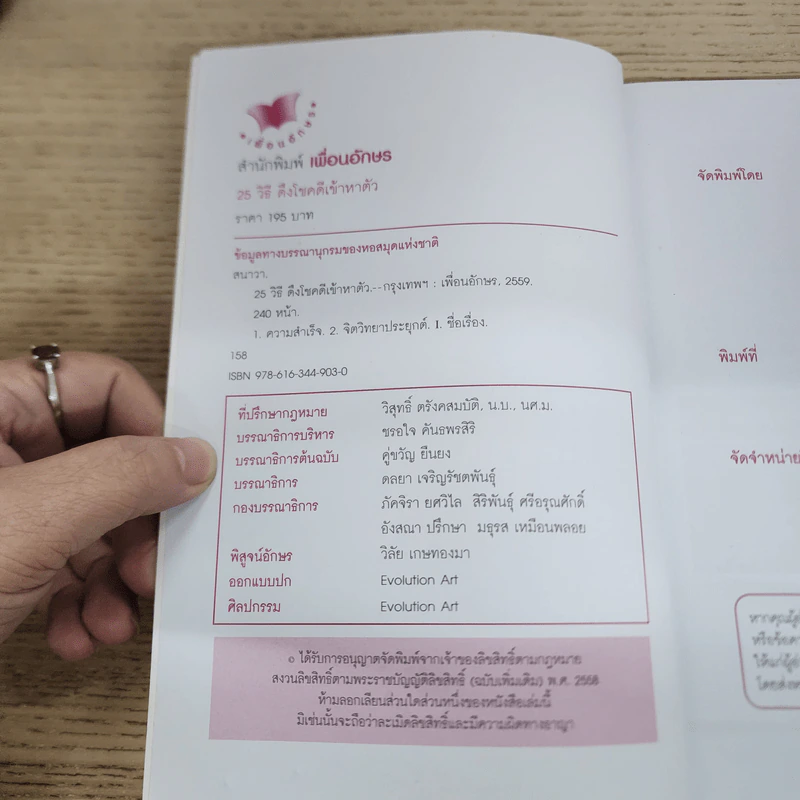 •เพื่อนอักษร•
สำนักพิมพ์ เพื่อนอักษร
25 วิธี ดึงโชคดีเข้าหาตัว
ราคา 195 บาท
ข้อมูลทางบรรณานุกรมของหอสมุดแห่งชาติ
สนาวา.
25 วิธี ดึงโชคดีเข้าหาตัว.--กรุงเทพฯ : เพื่อนอักษร, 2559.
240 หน้า.
1. ความสำเร็จ. 2. จิตวิทยาประยุกต์. I. ชื่อเรื่อง.
158
ISBN 978-616-344-903-0
ที่ปรึกษากฎหมาย วิสุทธิ์ ตรังคสมบัติ, น.บ., นศ.ม.
บรรณาธิการบริหาร ชรอใจ คันธพรสิริ
บรรณาธิการต้นฉบับ คู่ขวัญ ยืนยง
บรรณาธิการ ดลยา เจริญรัชตพันธุ์
กองบรรณาธิการ ภัคจิรา ยศวิไล สิริพันธุ์ ศรีอรุณศักดิ์
อังสณา ปรึกษา มธุรส เหมือนพลอย
พิสูจน์อักษร วิลัย เกษทองมา
ออกแบบปก Evolution Art
ศิลปกรรม Evolution Art
๐ ได้รับการอนุญาตจัดพิมพ์จากเจ้าของลิขสิทธิ์ตามกฎหมาย
สงวนลิขสิทธิ์ตามพระราชบัญญัติลิขสิทธิ์ (ฉบับเพิ่มเติม) พ.ศ. 2558
ห้ามลอกเลียนส่วนใดส่วนหนึ่งของหนังสือเล่มนี้
มิเช่นนั้นจะถือว่าละเมิดลิขสิทธิ์และมีความผิดทางอาญา
จัดพิมพ์โดย
พิมพ์ที่
จัดจำหน่าย
หากคุณผู้
หรือข้อ
โดยส่ง